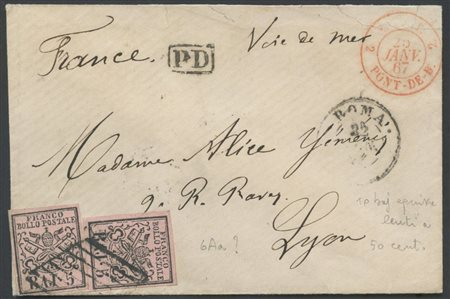 France.
Voie de mer
PD
2
25
JANV.
67
2
PONT-DE-B.
ROMA
22
Madame Alice Yéméniz
9. R.
Lyon
10 baj equiva
lenti a
50 cent.
6Aa?
FRANCO
BOLLO POSTALE
BAJ 5
FRANCO
BOLLO POSTALE
BAJ 5